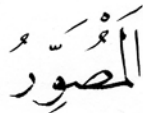 اَلْمُصَوِّرُ